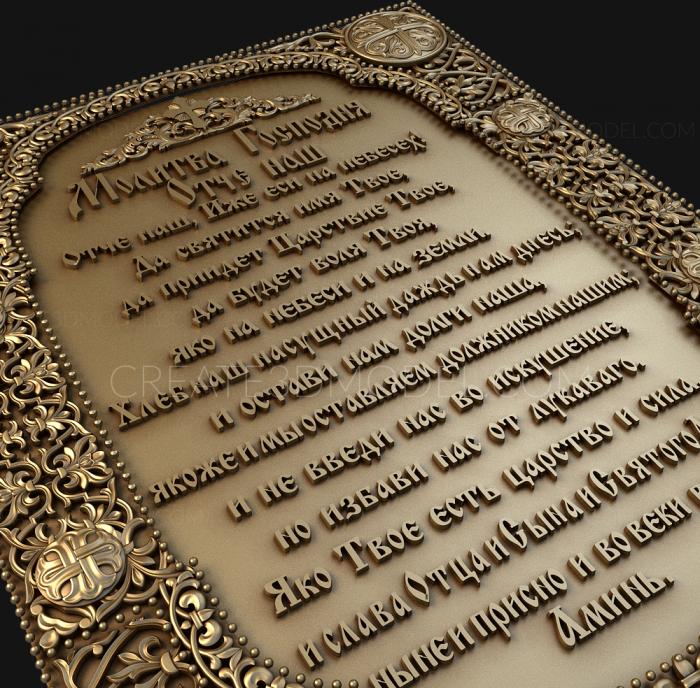 Молитва Господня
Отче наш
отче наш, Иже еси на небесех
Да святится имя Твое
да приидет Царствие Твое
да будет воля Твоя,
яко на небеси и на земли.
Хлеб наш насущный даждь нам днесь;
и остави нам долги наша,
якоже и мы оставляем должником нашим;
и не введи нас во искушение,
но избави нас от лукаваго.
Яко Твое есть царство и сила
и слава Отца и Сына и Святого
ныне и присно и во веки
Аминь.
CREATE3DMODEL.COM